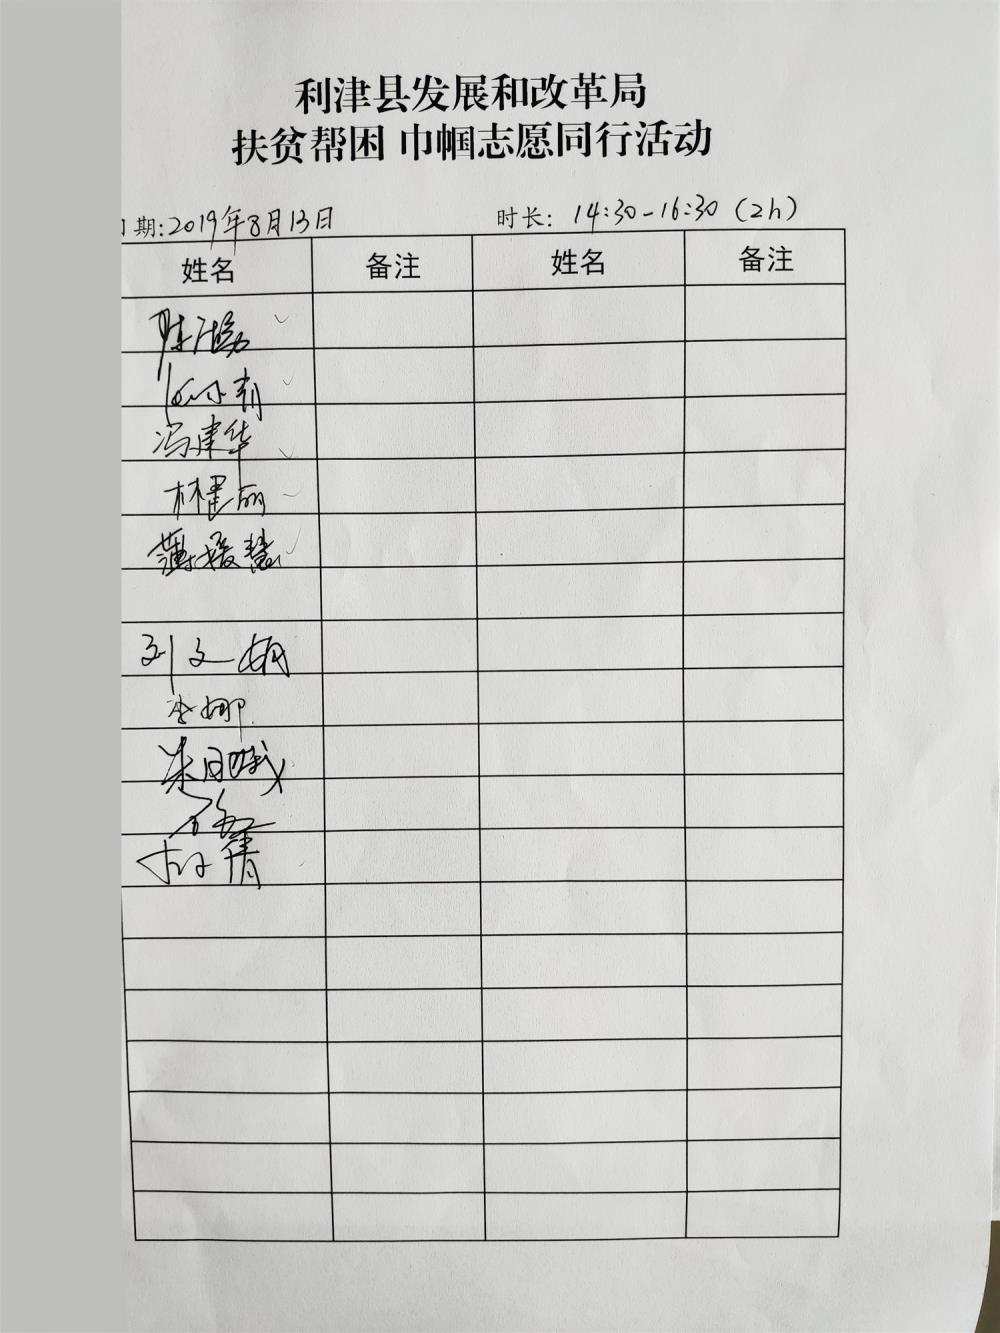 利津县发展和改革局
扶贫帮困 巾帼志愿同行活动
期:2019年8月13日 时长: 14:30-16:30 (2h)
姓名 备注 姓名 备注
冯建华
林建丽
薄媛慧
刘文娟
李娜